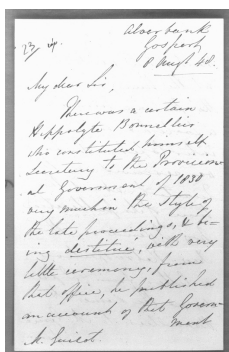 Alverbank
Gosport
8 Augt 48.
My dear Sir,
There was a certain
Hippolyte Bonnellier
who constituted himself
Secretary to the Provision-
al Government of 1830
very much in the style of
the late proceedings, & be-
ing destitué, with very
little ceremony, from
that office, he published
an account of that Govern-
ment
M. Guizot